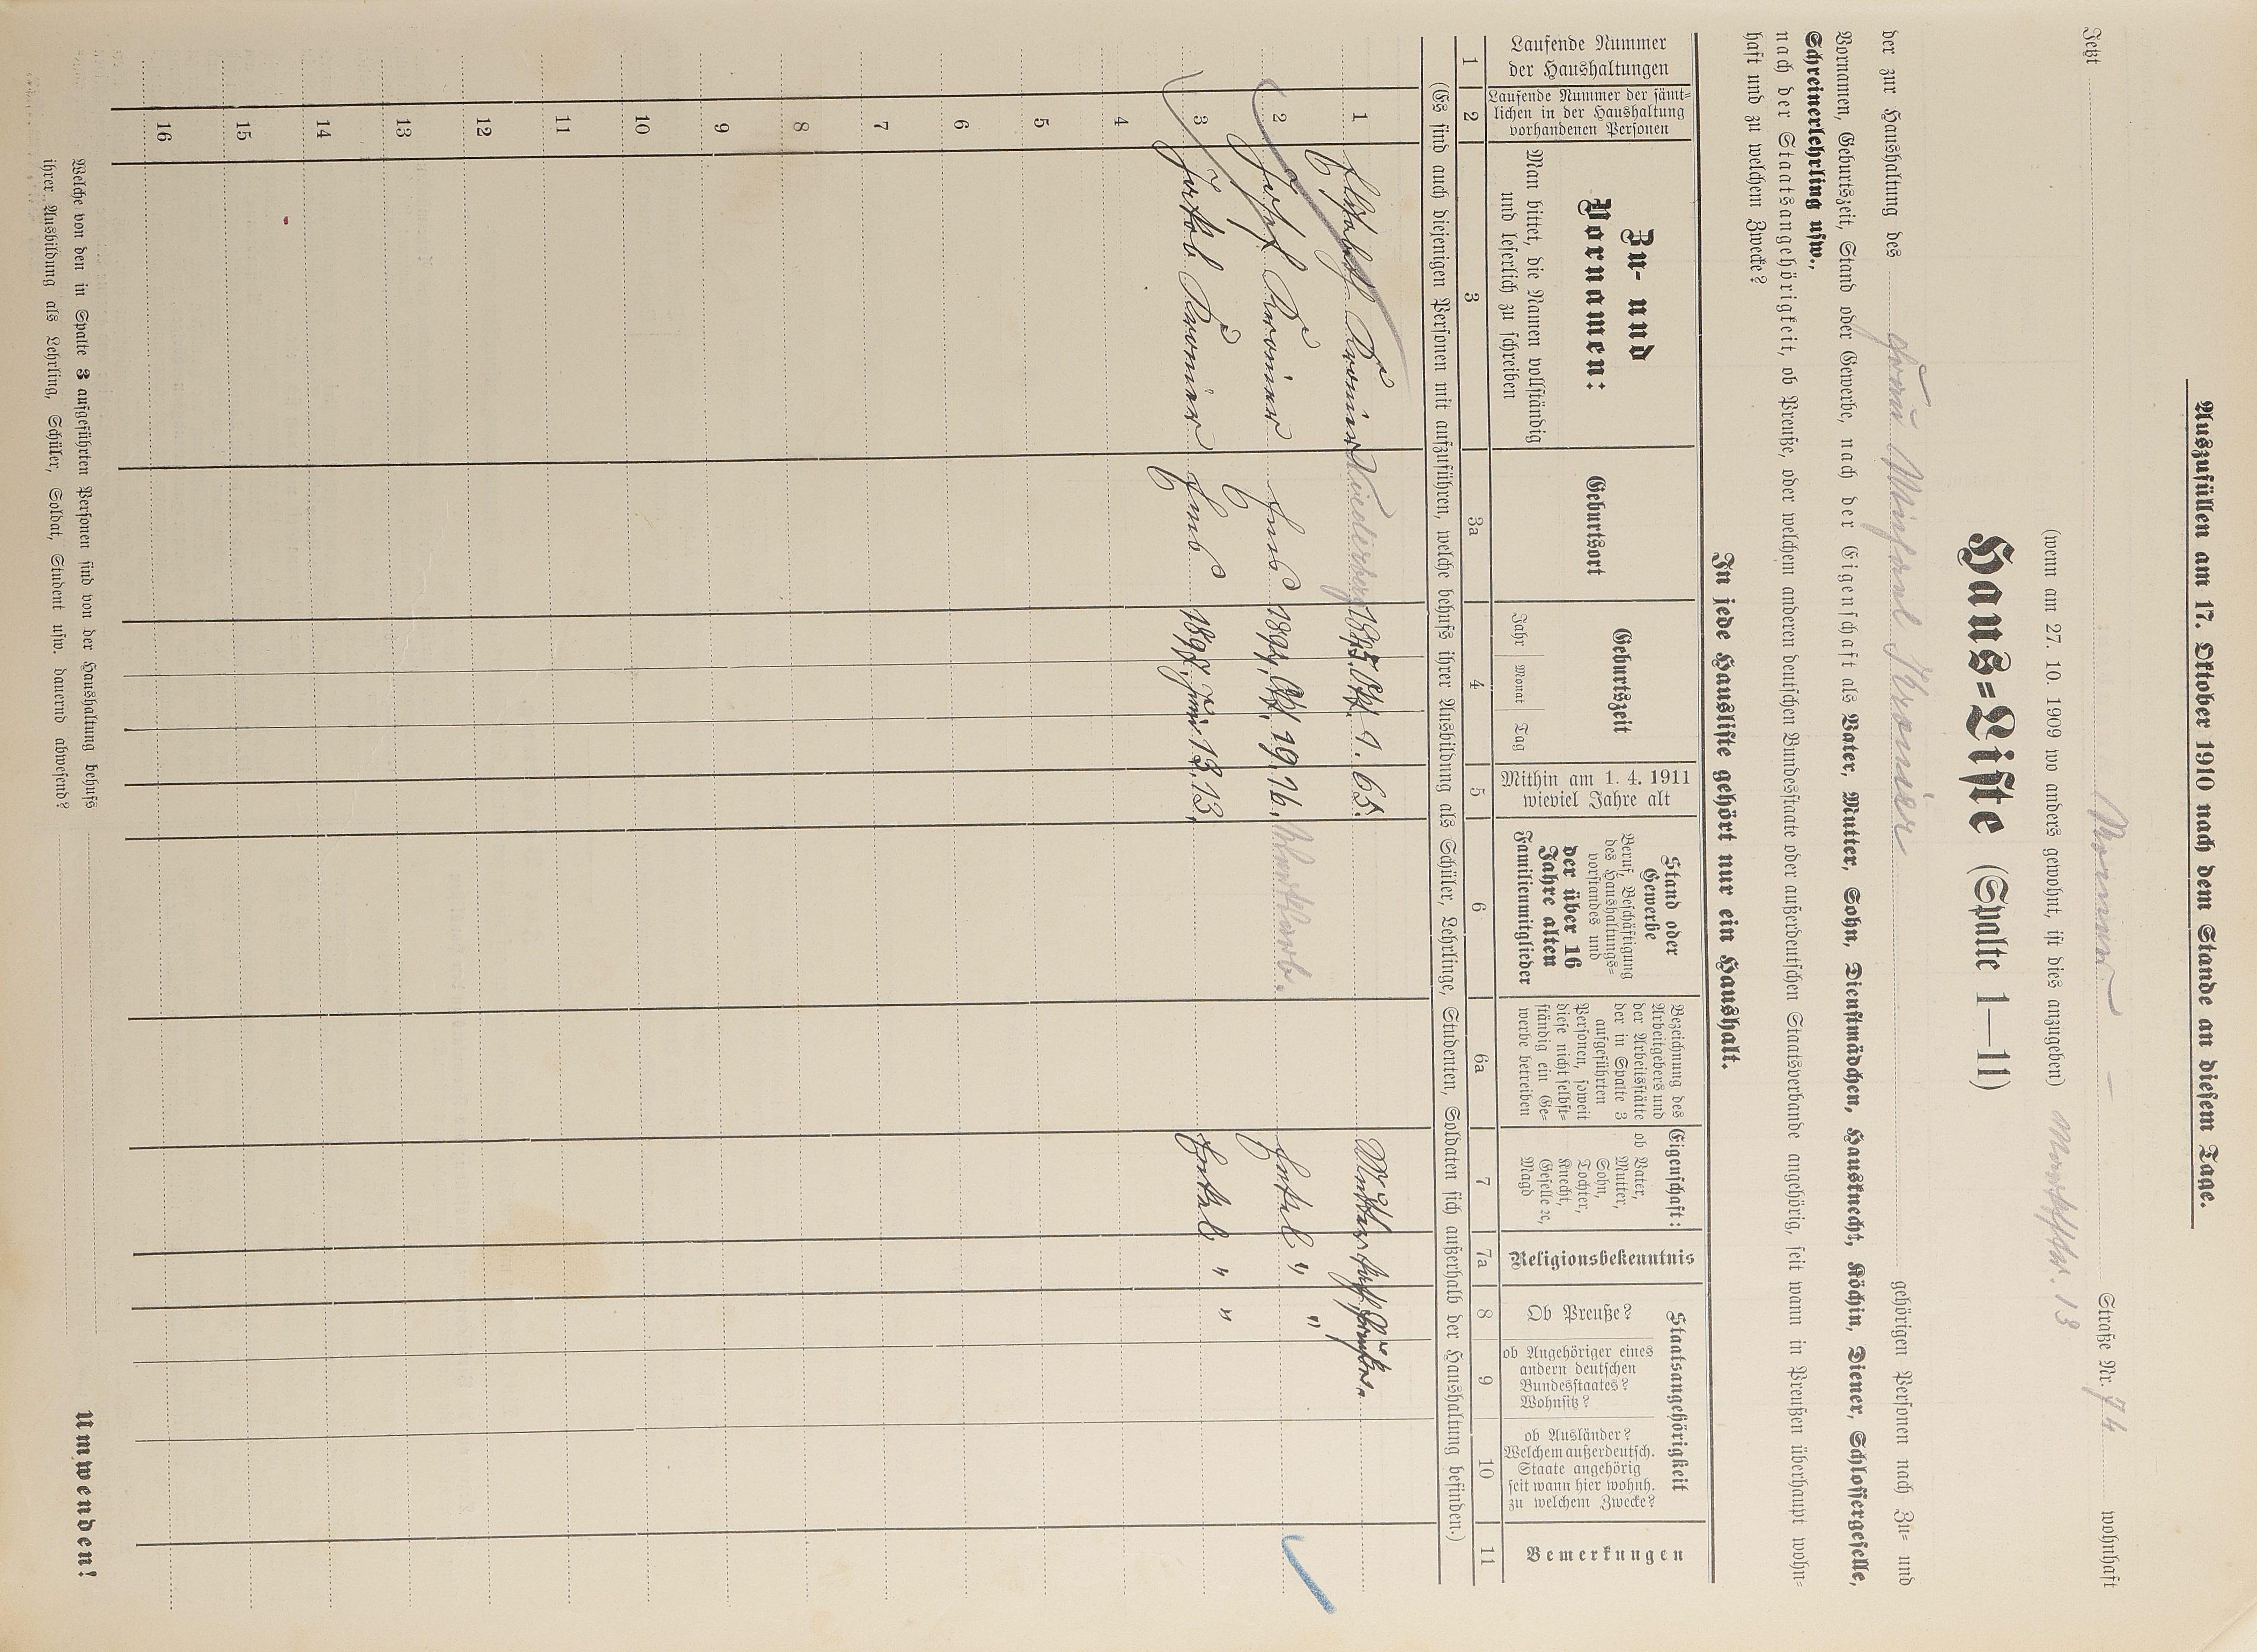 Auszufüllen am 17. Oktober 1910 nach dem Stande an diesem Tage.
Jetzt Straße Nr. 74 wohnhaft
(wenn am 27. 10. 1909 wo anders gewohnt, ist dies anzugeben) 13
Haus-Liste (Spalte 1—11)
der zur Haushaltung des gehörigen Personen nach Zu- und
Vornamen, Geburtszeit, Stand oder Gewerbe, nach der Eigenschaft als Vater, Mutter, Sohn, Dienstmädchen, Hausknecht, Köchin, Diener, Schlossergeselle,
Schreinerlehrling usw.,
nach der Staatsangehörigkeit, ob Preuße, oder welchem anderen deutschen Bundesstaate oder außerdeutschen Staatsverbande angehörig, seit wann in Preußen überhaupt wohn-
haft und zu welchem Zwecke?
In jede Hausliste gehört nur ein Haushalt.
Laufende Nummer
der Haushaltungen
Laufende Nummer der sämt-
lichen in der Haushaltung
vorhandenen Personen
Zu- und
Vornamen:
Man bittet, die Namen vollständig
und leserlich zu schreiben
Geburtsort
Geburtszeit
Jahr Monat Tag
Mithin am 1. 4. 1911
wieviel Jahre alt
Stand oder
Gewerbe
Beruf, Beschäftigung
des Haushaltungs-
vorstandes und
der über 16
Jahre alten
Familienmitglieder
Bezeichnung des
Arbeitgebers und
der Arbeitsstätte
der in Spalte 3
aufgeführten
Personen, soweit
diese nicht selbst-
ständig ein Ge-
werbe betreiben
Eigenschaft:
ob Vater,
Mutter,
Sohn,
Tochter,
Knecht,
Geselle ꝛc,
Magd
Religionsbekenntnis
Staatsangehörigkeit
Ob Preuße?
ob Angehöriger eines
andern deutschen
Bundesstaates?
Wohnsitz?
ob Ausländer?
Welchem außerdeutsch.
Staate angehörig
seit wann hier wohnh.
zu welchem Zwecke?
Bemerkungen
1 2 3 3a 4 5 6 6a 7 7a 8 9 10 11
(Es sind auch diejenigen Personen mit aufzuführen, welche behufs ihrer Ausbildung als Schüler, Lehrlinge, Studenten, Soldaten sich außerhalb der Haushaltung befinden.)
1 Elisabeth Kronier 1845. Okt. 1. 65.
2 Josef Kronier Ems 1894, Okt. 19. 16, Enkel " "
3 Jakob Kronier Ems 1897, Juni 13. 13, Enkel " "
4
5
6
7
8
9
10
11
12
13
14
15
16
Welche von den in Spalte 3 aufgeführten Personen sind von der Haushaltung behufs
ihrer Ausbildung als Lehrling, Schüler, Soldat, Student usw. dauernd abwesend?
Umwenden!